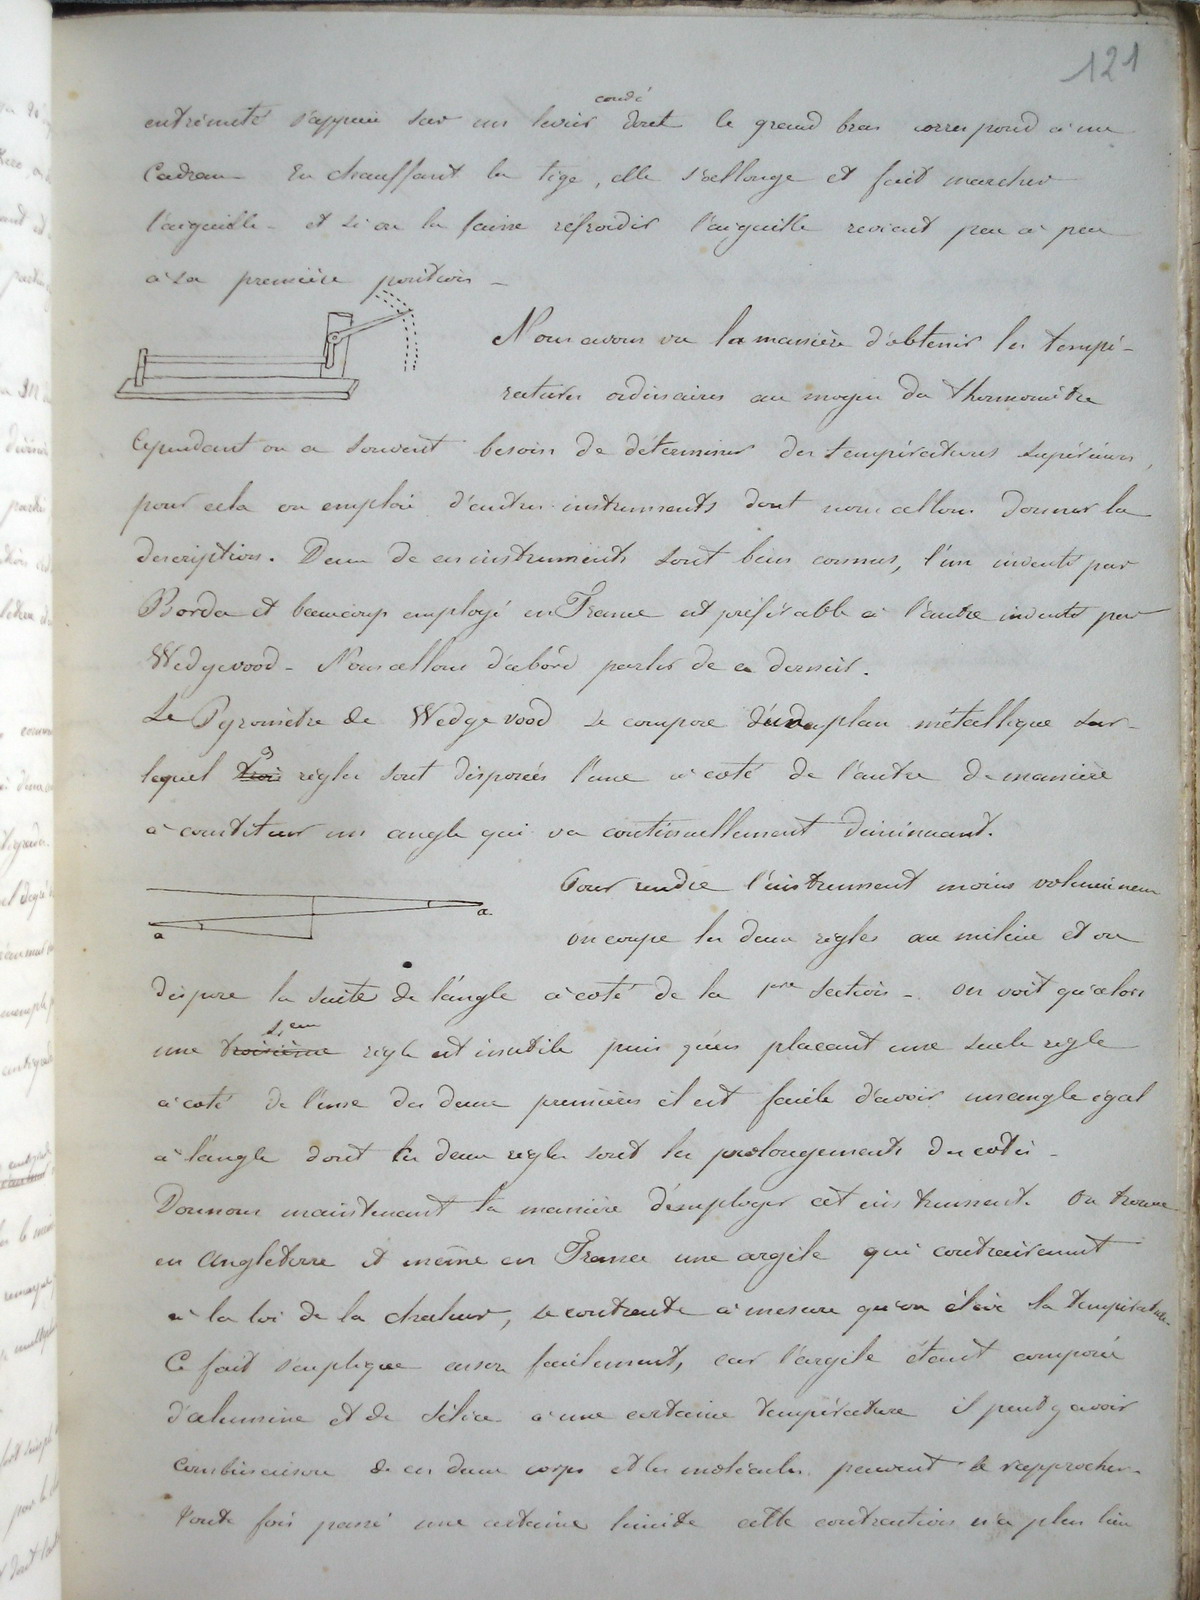 121
coudé
extrémité s'appuie sur un levier dont le grand bras correspond à un
Cadran - En chauffant la tige, elle s'allonge et fait marcher
l'aiguille - et si on la laisse refroidir l'aiguille revient peu à peu
à sa première position -
Nous avons vu la manière d'obtenir les tempé-
ratures ordinaires au moyen du thermomètre
Cependant on a souvent besoin de déterminer des températures supérieures,
pour cela on emploie d'autres instruments dont nous allons donner la
description. Deux de ces instruments sont bien connus, l'un inventé par
Borda et beaucoup employé en France est préférable à l'autre inventé par
Wedgevood - Nous allons d'abord parler de ce dernier.
Le Pyromètre de Wedgevood se compose d'un plan métallique sur-
3
lequel trois règles sont disposées l'une à coté de l'autre de manière
à constituer un angle qui va continuellement diminuant.
Pour rendre l'instrument moins volumineux
a
on coupe les deux règles au milieu et on
a
dispose la suite de l'angle à coté de la 1ère section - on voit qu'alors
une troisième règle est inutile puis qu'en placant une seule règle
à coté de l'une des deux premières il est facile d'avoir un angle égal
à l'angle dont les deux règles sont les prolongements des cotés -
Donnons maintenant la manière d'employer cet instrument. On trouve
en Angleterre et même en France une argile qui contrairement
à la loi de la chaleur, se contracte à mesure qu'on élève la température.
Ce fait s'explique assez facilement, car l'argile étant composée
d'alumine et de silice à une certaine température il peut y avoir
Combinaison de ces deux corps et les molécules peuvent se rapprocher.
Toute fois passé une certaine limite cette contraction n'a plus lieu